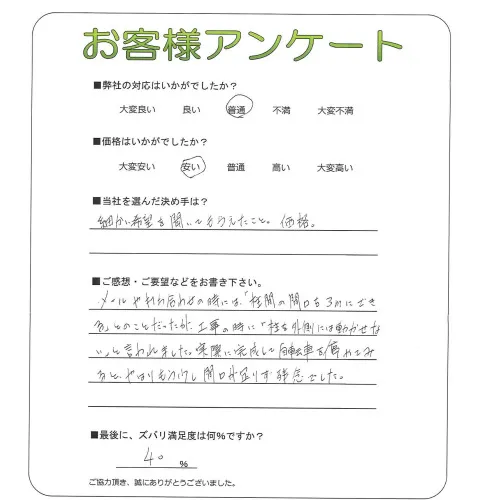 お客様アンケート
■弊社の対応はいかがでしたか？
大変良い 良い 普通 不満 大変不満
■価格はいかがでしたか？
大変安い 安い 普通 高い 大変高い
■当社を選んだ決め手は？
細かい希望を聞いてもらえたこと。価格。
■ご感想・ご要望などをお書き下さい。
メールやり打合わせの時には、「柱間の開口を3mにでき
る」とのことだったが、工事の時に「柱を外側には動かせな
い」と言われました。実際に完成して自転車を停めてみ
ると、やはりもう少し開口が足りず残念でした。
■最後に、ズバリ満足度は何%ですか？
40 %
ご協力頂き、誠にありがとうございました。